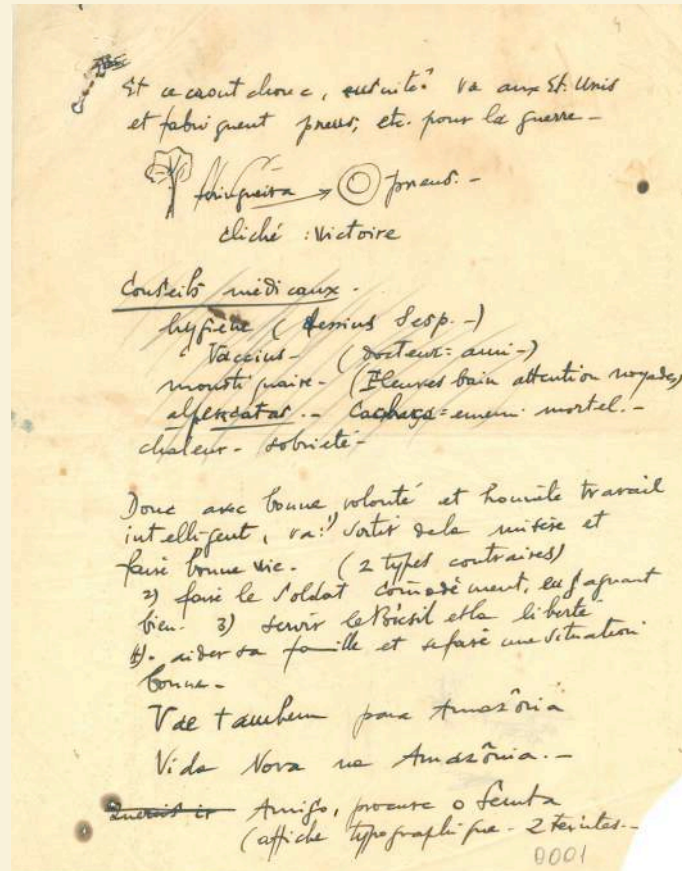 Et ce caoutchouc, ensuite? va aux Et. Unis
et fabriquent pneus, etc. pour la guerre -
seringueira → pneus. -
cliché : Victoire
Conseils médicaux -
hygiène (dessins Sesp. -)
Vaccins - (docteur = ami -)
moustiquaire - (Fleuves bain attention noyades)
alpercatas. - Cachaça = ennemi mortel. -
chaleur - sobriété -
Donc avec bonne volonté et honnête travail
intelligent, va: 1) sortir de la misère et
faire bonne vie. (2 types contraires)
2) faire le soldat commodément, en gagnant
bien. 3) servir le Brésil et la liberté
4). aider sa famille et se faire une situation
bonne -
Vae tambem para Amazônia
Vida Nova na Amazônia. -
Amigo, procure o Semta
(affiche typographique - 2 teintes. -
0001